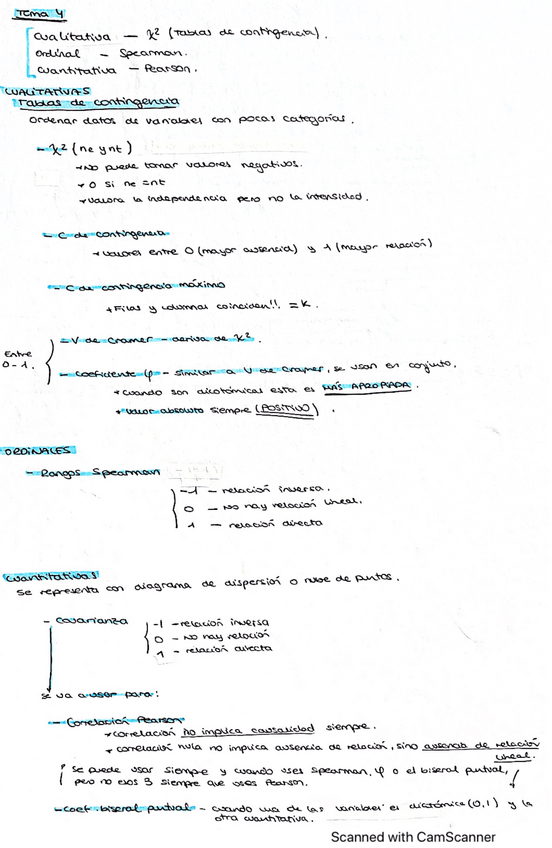 Tema 4
Cualitativa — χ² (Tablas de contingencia).
Ordinal — Spearman.
Cuantitativa — Pearson.
CUALITATIVAS
Tablas de contingencia
Ordenar datos de variables con pocas categorías.
- χ² (ne y nt)
+ No puede tomar valores negativos.
+ 0 si ne = nt
+ Valora la independencia pero no la intensidad.
- C de contingencia
+ Valores entre 0 (mayor ausencia) y 1 (mayor relación)
- C de contingencia máximo
+ Filas y columnas coinciden!! = K.
Entre 0-1.
- V de Cramer - deriva de χ².
- Coeficiente φ - similar a V de Cramer, se usan en conjunto.
+ Cuando son dicotómicas esta es MÁS APROPIADA.
+ Valor absoluto siempre (POSITIVO).
ORDINALES
- Rangos Spearman
-1 - relación inversa.
0 - No hay relación lineal.
1 - relación directa
Cuantitativas
Se representa con diagrama de dispersión o nube de puntos.
- Covarianza
-1 - relación inversa
0 - No hay relación
1 - relación directa
se va a usar para:
- Correlación Pearson
+ correlación no implica causalidad siempre.
+ correlación nula no implica ausencia de relación, sino ausencia de relación lineal.
! se puede usar siempre y cuando uses Spearman, φ o el biseral puntual,
pero no esos 3 siempre que uses Pearson.
- Coef. biseral puntual - cuando una de las variables es dicotómica (0,1) y la
otra cuantitativa.
Scanned with CamScanner